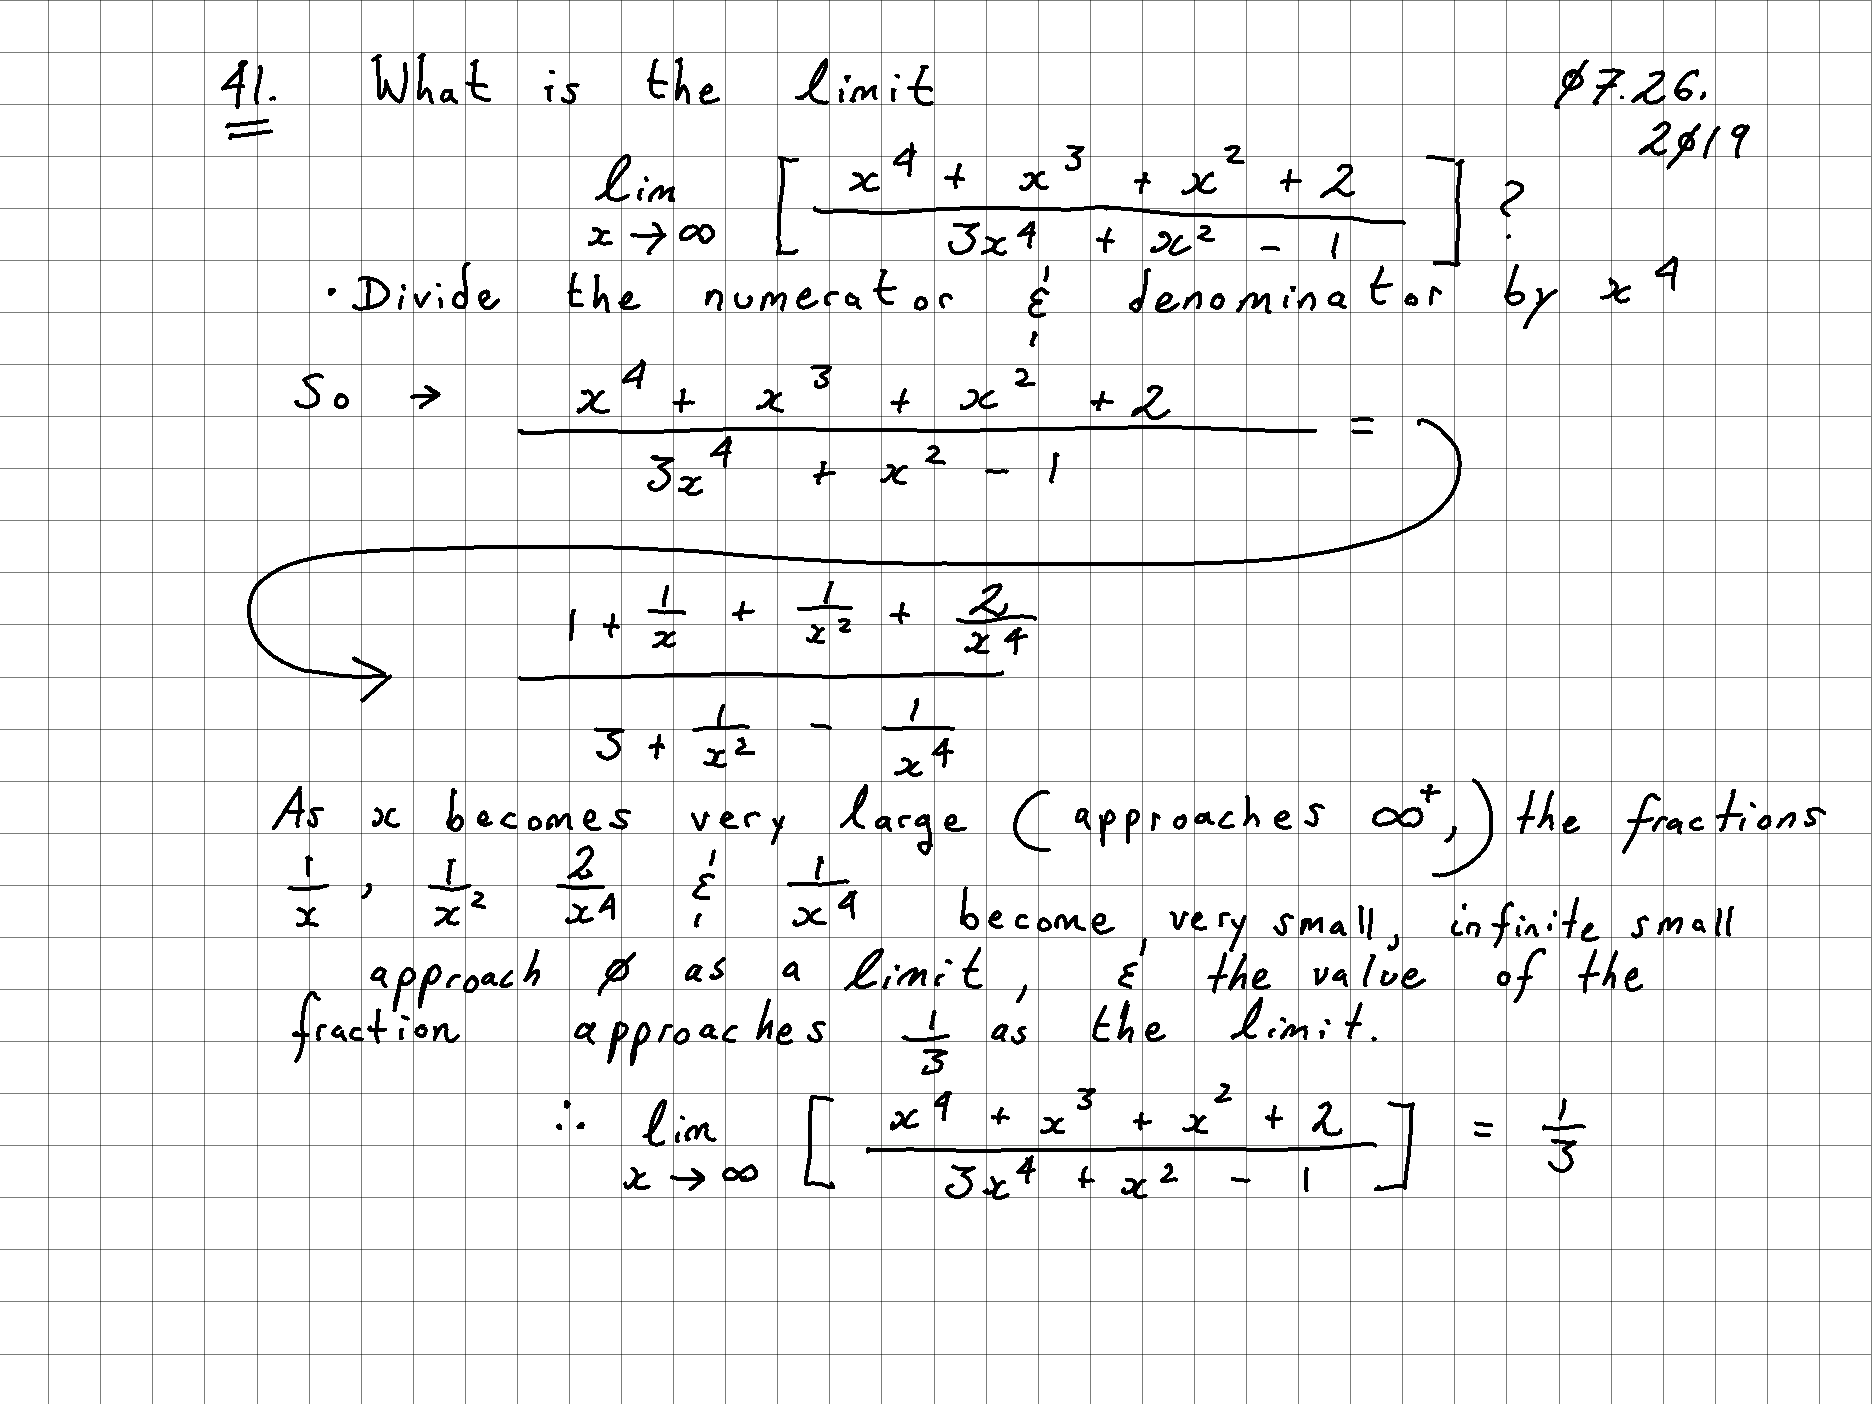 41. What is the limit ∅7.26.
2∅19
lim x→∞ [ (x^4 + x^3 + x^2 + 2) / (3x^4 + x^2 - 1) ] ?
· Divide the numerator & denominator by x^4
So → (x^4 + x^3 + x^2 + 2) / (3x^4 + x^2 - 1) =
(1 + 1/x + 1/x^2 + 2/x^4) / (3 + 1/x^2 - 1/x^4)
As x becomes very large (approaches ∞^+,) the fractions
1/x , 1/x^2 2/x^4 & 1/x^4 become very small, infinite small
approach ∅ as a limit, & the value of the
fraction approaches 1/3 as the limit.
∴ lim x→∞ [ (x^4 + x^3 + x^2 + 2) / (3x^4 + x^2 - 1) ] = 1/3